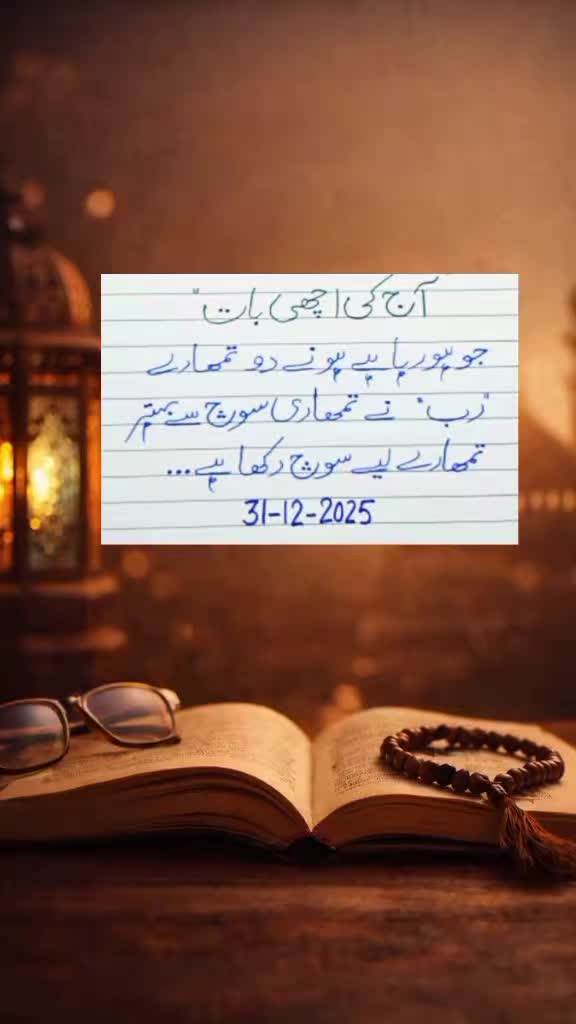 آج کی اچھی بات"
جو ہورہا ہے ہونے دو تمھارے
"رب" نے تمھاری سوچ سے بہتر
تمھارے لیے سوچ رکھا ہے...
31-12-2025